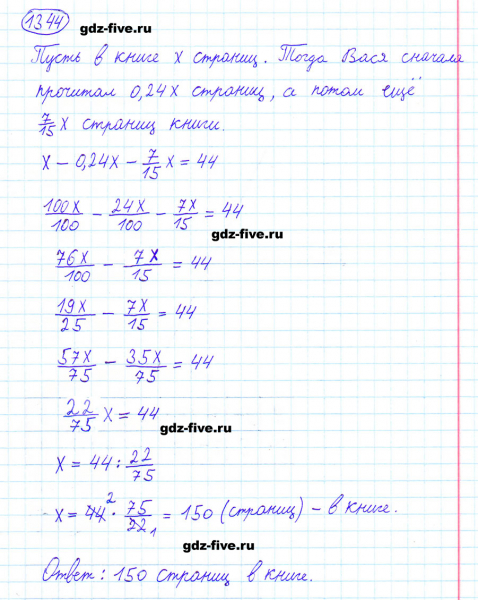 1344 gdz-five.ru
Пусть в книге x страниц. Тогда Вася сначала
прочитал 0,24x страниц, а потом ещё
7/15 x страниц книги.
x - 0,24x - 7/15 x = 44
100x/100 - 24x/100 - 7x/15 = 44
gdz-five.ru
76x/100 - 7x/15 = 44
19x/25 - 7x/15 = 44
57x/75 - 35x/75 = 44
22/75 x = 44
gdz-five.ru
x = 44 : 22/75
x = 44² · 75/22₁ = 150 (страниц) - в книге.
gdz-five.ru
Ответ: 150 страниц в книге.